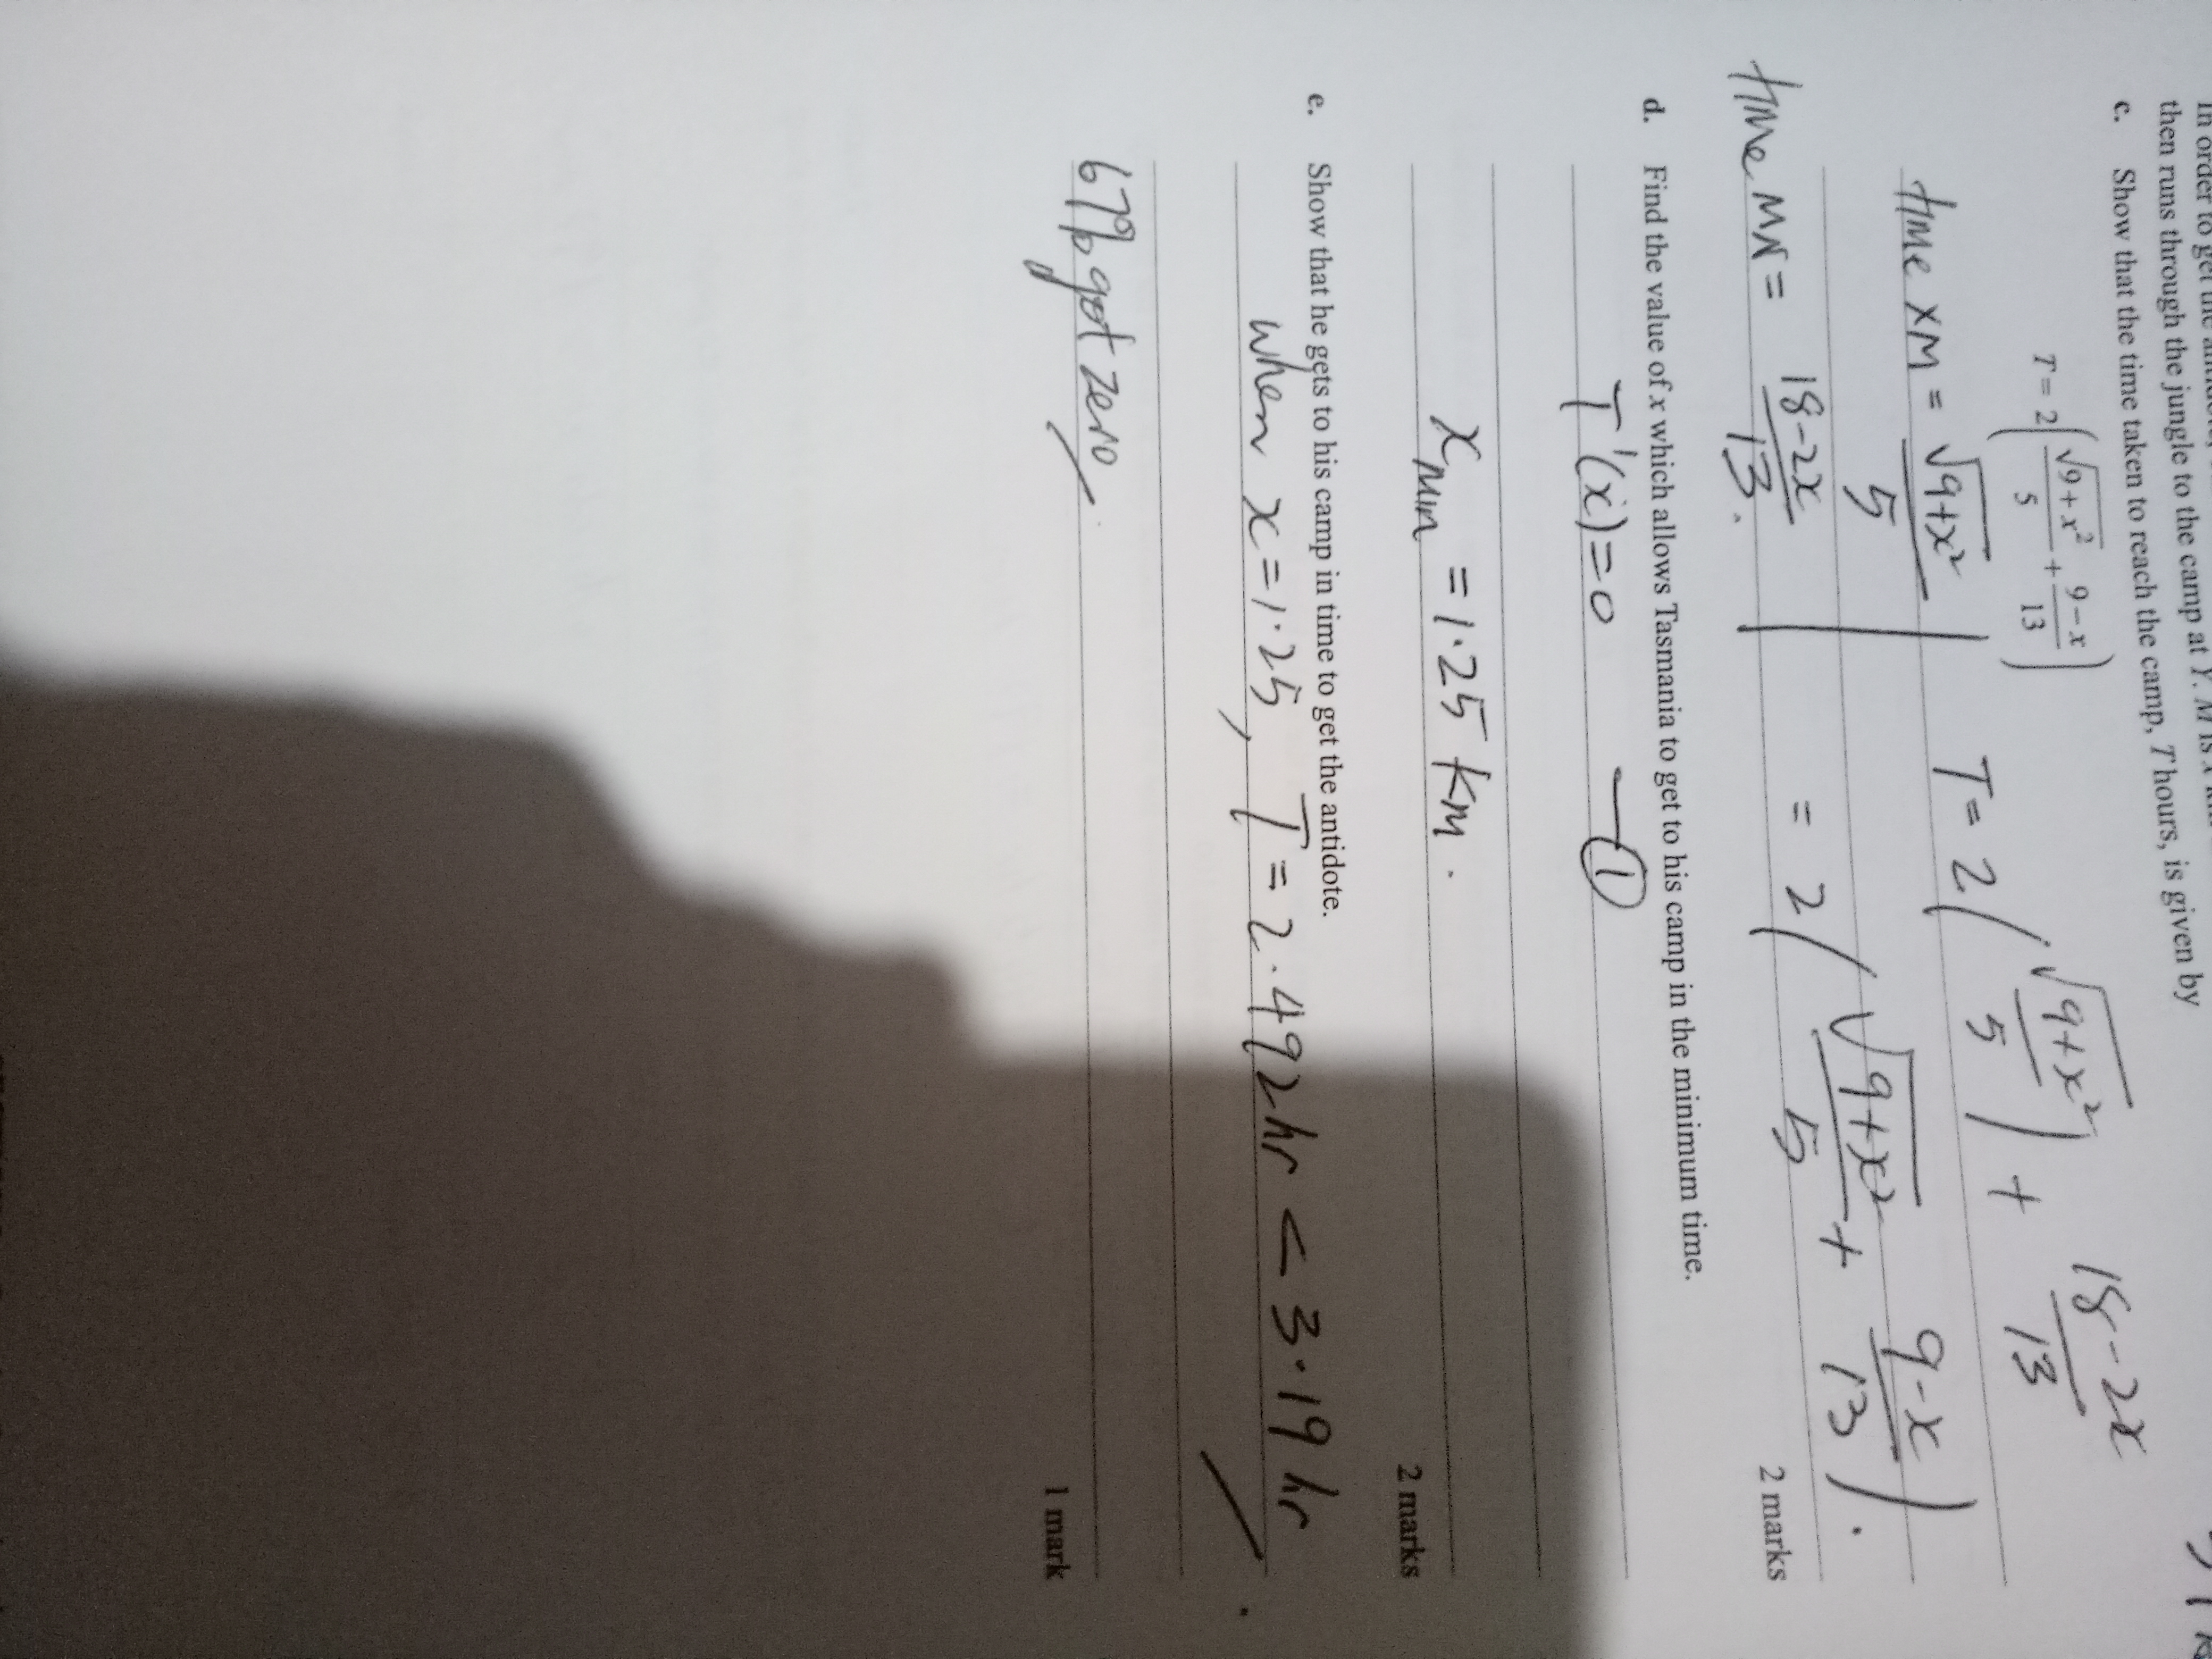 In order to get the
then runs through the jungle to the camp at Y. M is x
c. Show that the time taken to reach the camp, T hours, is given by
T = 2(√9+x²/5 + 9−x/13)
T = 2(√9+x²/5) + 18-2x/13
time XM = √9+x²/5
= 2(√9+x²/5 + 9-x/13).
time MN = 18-2x/13.
2 marks
d. Find the value of x which allows Tasmania to get to his camp in the minimum time.
T'(x)=0 — ①
x min = 1.25 km.
2 marks
e. Show that he gets to his camp in time to get the antidote.
when x=1.25, T = 2.492hr < 3.19 hr
67% got zero
1 mark